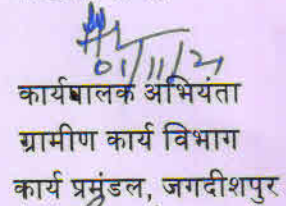 01/11/21
कार्यपालक अभियंता
ग्रामीण कार्य विभाग
कार्य प्रमंडल, जगदीशपुर